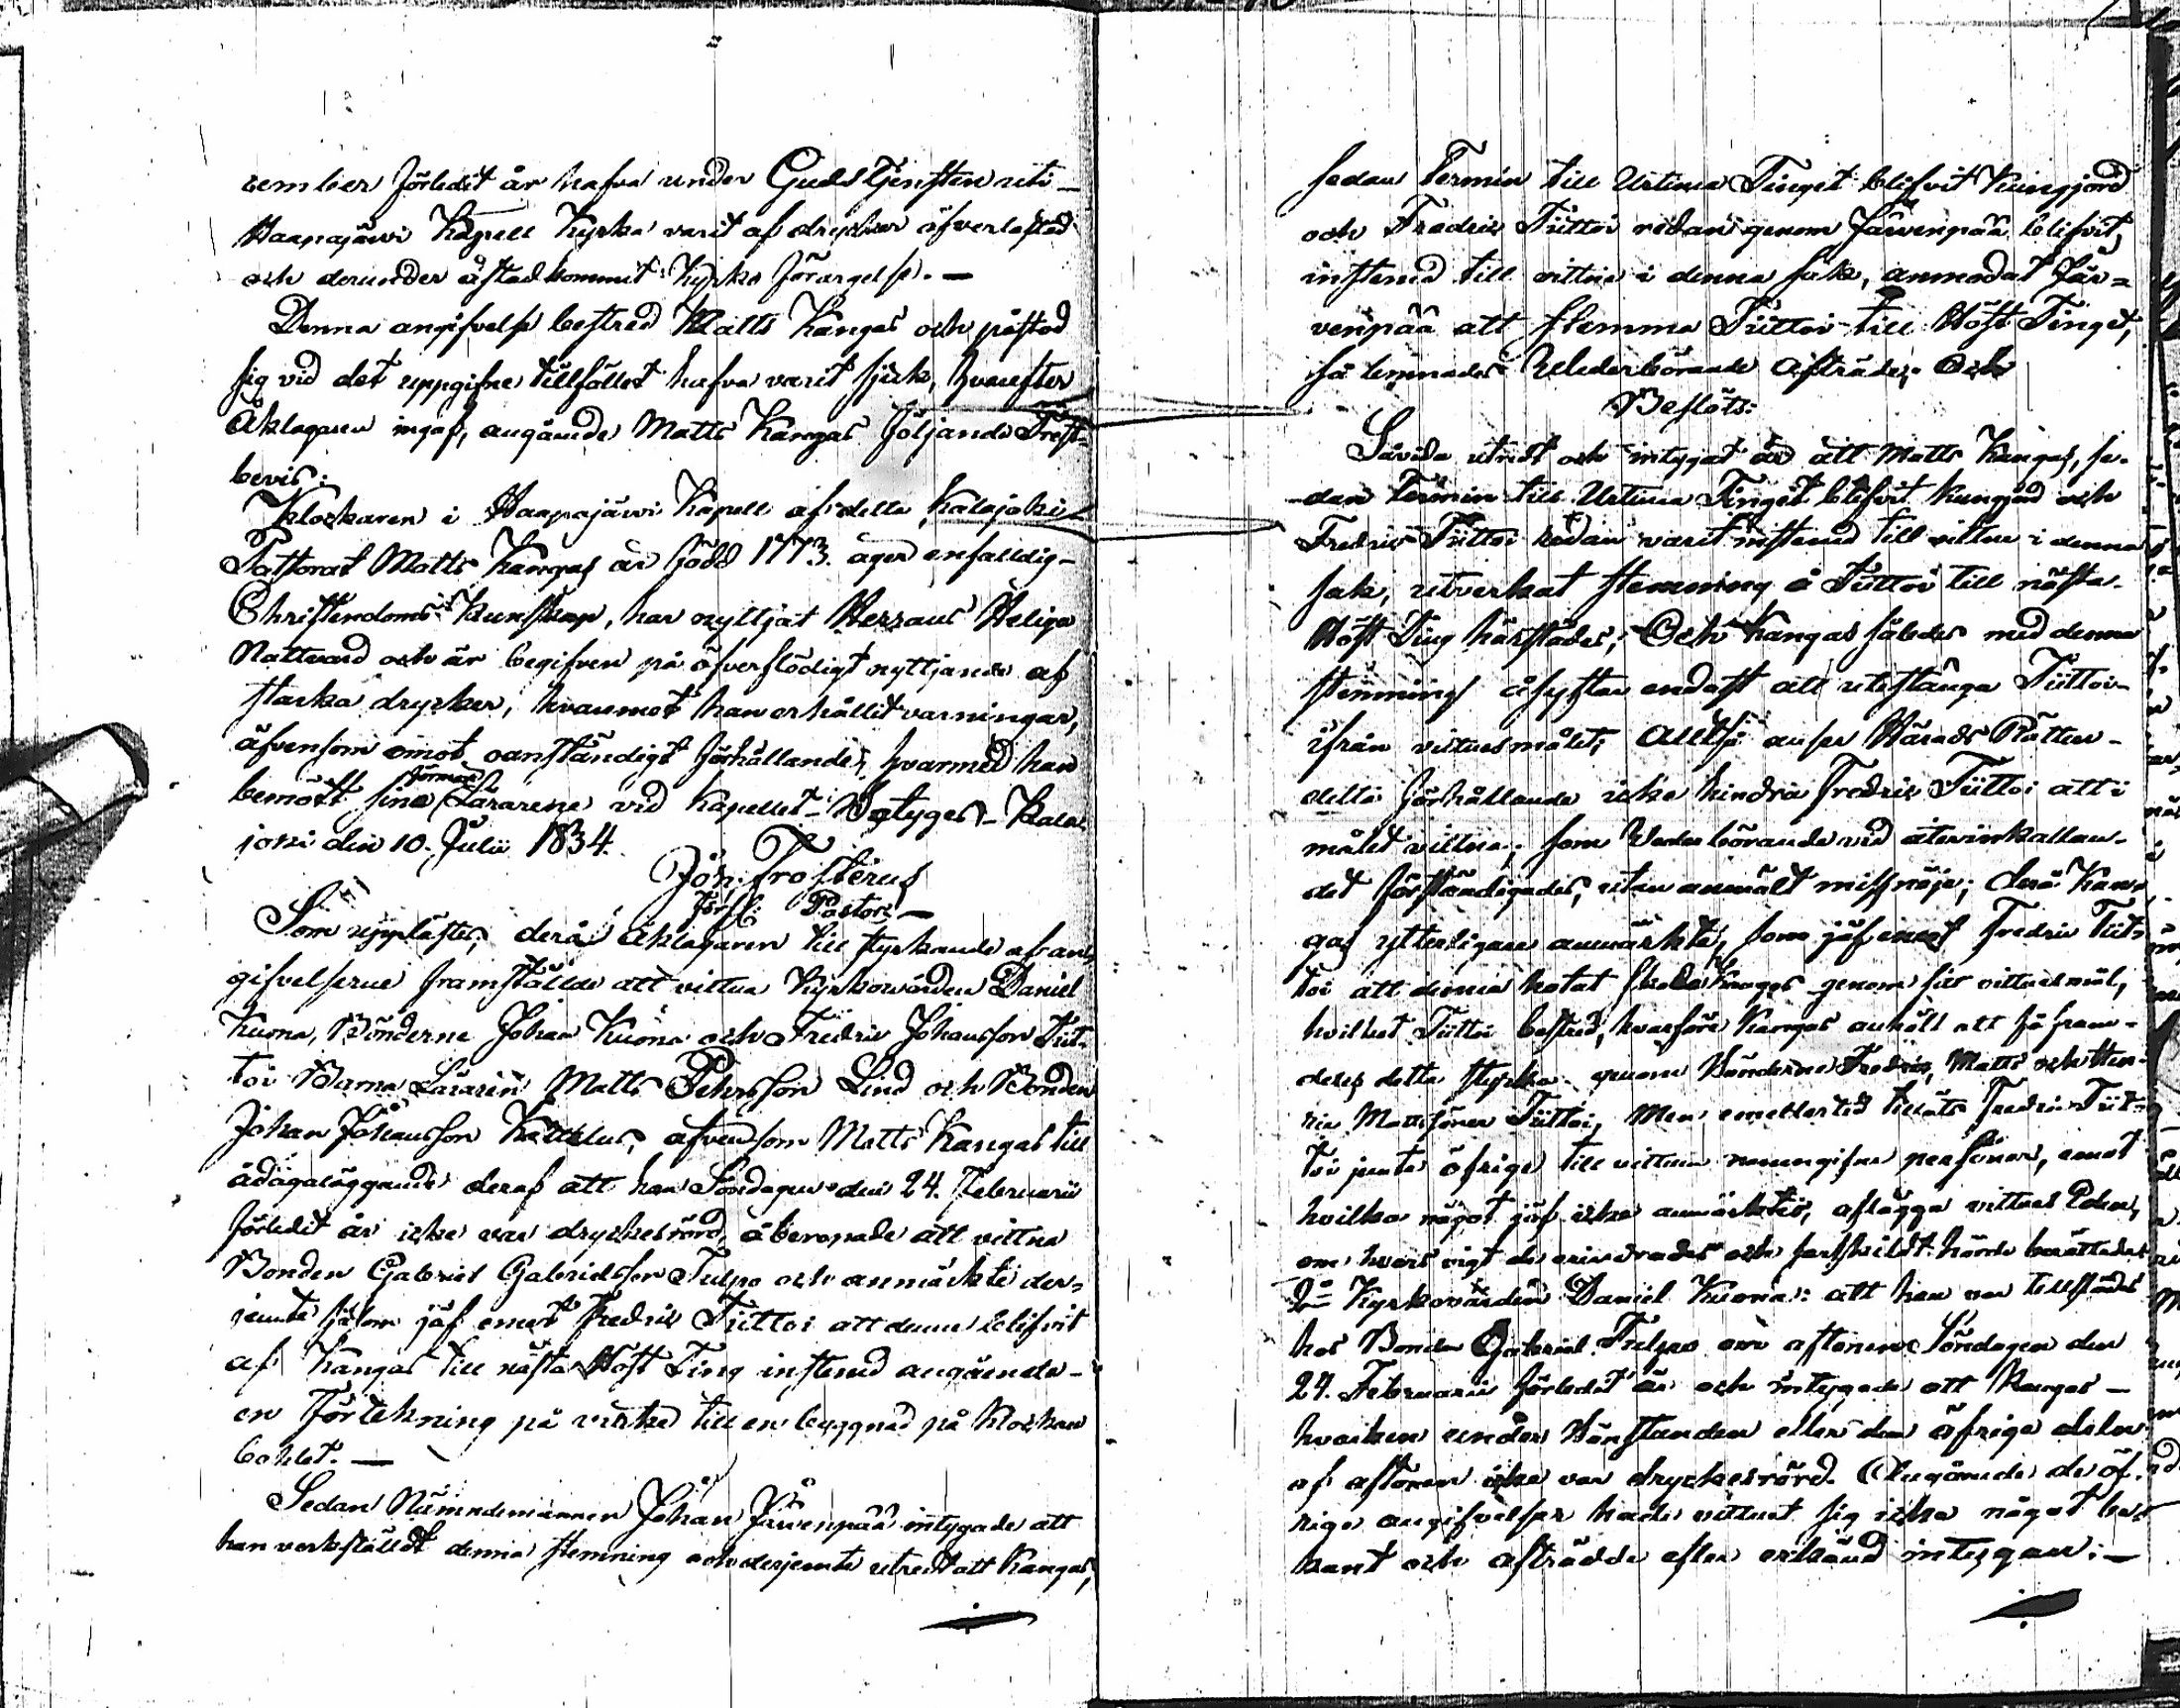 cember förledit år hafva under Gudstjensten uti
Haapajärvi Kapell Kyrka varit af drycker öfverlastad
och derunder åstadkommit Kyrko förargelse. —
Denna angifvelse bestred Matts Kangas och påstod
sig vid det uppgifne tillfället hafva varit sjuk, hvarefter
Åklagaren ingaf, angående Matts Kangas följande Frejd-
bevis:
Klockaren i Haapajärvi Kapell af detta Kalajoki
Pastorat Matts Kangas är född 1773. äger enfalldig
Christendoms Kunskap, har nyttjat Herrans Heliga
Nattvard och är begifven på öfverflödigt nyttjande af
starka drycker, hvaremot han erhållit varningar,
äfvensom emot oanständigt förhållande, hvarmed han
bemött sina förmän Lärarene vid Kapellet. Betyges. Kala-
joki den 10. Julii 1834.
Joh. Frosterus
Pastor. —
Som upplästes; derå Åklagaren till styrkande af an-
gifvelserne framställde att vittna Kyrkovärden Daniel
Kuona, Bönderne Johan Kuona och Fredric Johansson Tiit-
toi Barna Läraren Matts Pehrsson Lind och Bonden
Johan Johansson Kattelus, äfvensom Matts Kangas till
ådagaläggande deraf att han Söndagen den 24. Februarii
förledit år icke var dryckesrörd, åberopade att vittna
Bonden Gabriel Gabrielsson Tulpo och anmärkte der-
jemte såsom jäf emot Fredric Tiittoi att denne blifvit
af Kangas till nästa Höst Ting instemd angående
en förtekning på virke till en byggnad på Klockare
bohlet. —
Sedan Nämndemannen Johan Järvenpää intygade att
han verkställdt denna stemning och derjemte utredt att Kangas,
sedan Termin till Urtima Tinget blifvit Kungjord
och Fredric Tiittoi redan genom Järvenpää blifvit
instemd till vittne i denna sak, anmodat Jär-
venpää att stemma Tiittoi till Höst Tinget,
så lemnades Vederbörande afträde; Och
Beslöts:
Såvida utredt och intygat är att Matts Kangas, se-
dan Termin till Urtima Tinget blifvit kungjord och
Fredric Tiittoi redan varit instemd till vittne i denna
sak, utverkat stemning å Tiittoi till nästa
Höst Ting härstädes; Och Kangas således med denna
stemning åsyftar endast att utestänga Tiittoi
ifrån vittnesmålet; Alltså anser Härads Rätten
detta förhållande icke hindra Fredric Tiittoi att i
målet vittna; som Vederbörande vid återinkallan-
det förständigades, utan anmält missnöje; derå Kan-
gas ytterligare anmärkte, som jäf emot Fredric Tiit-
toi att denna hotat skada Kangas genom sitt vittnesmål,
hvilket Tiittoi bestred, hvarföre Kangas anhöll att få fram-
deles detta styrka genom Bönderne Fredric, Matts och Hen-
ric Mattssöner Tiittoi, Men emellertid tilläts Fredric Tiit-
toi jemte öfrige till vittnen namngifne personer, emot
hvilka något jäf icke anmärktes, aflägga vittnes Eden,
om hvars vigt de erindrades och särskildt hörde berättade:
1o Kyrkovärden Daniel Kuona: att han var tillstädes
hos Bonden Gabriel Tulpo om aftonen Söndagen den
24. Februarii förledit år och intygade att Kangas —
hvarken under Bönstunden eller den öfriga delen
af aftonen icke var dryckesrörd. Angående de öf-
rige angifvelser hade vittnet sig icke något be-
kant och afträdde efter erkänd intygan: —